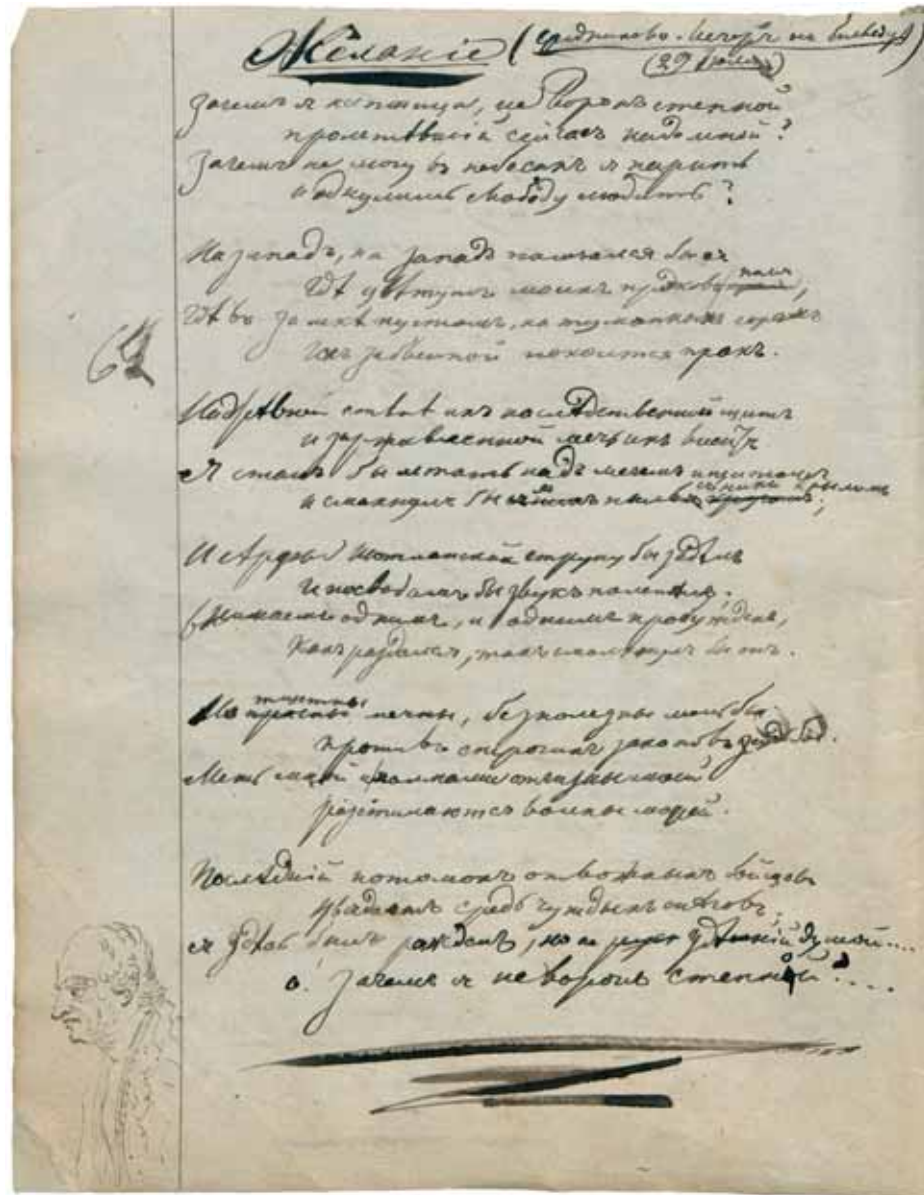 Желаніе (Средниково. Вечеръ на бельведерѣ)
(29 Іюля)
Зачѣмъ я не птица, не Воронъ степной
пролетѣвшій сейчасъ надо мной?
Зачѣмъ не могу въ небесахъ я парить
и одну лишь свободу любить?
На западъ, на западъ помчался бы я
Гдѣ цвѣтутъ моихъ предковъ поля,
Гдѣ въ замкѣ пустомъ, на туманныхъ горахъ
Ихъ забвенной покоится прахъ.
На древней стѣнѣ ихъ наслѣдственный щитъ
и заржавленной мечь ихъ виситъ
Я сталъ бы летать надъ мечемъ и щитомъ
и смахнулъ бы я пыль съ нихъ крыломъ;
И Арфы Шотланской струну бы задѣлъ
И по сводамъ бы звукъ полетѣлъ.
Внимаемъ однимъ, и однимъ пробужденъ,
Какъ раздался, такъ смолкнулъ бы онъ.
Но тщетны мечты, безполезны мольбы
противъ строгихъ законовъ судьбы.
Межъ мной и холмами отчизны моей
разстилаются волны морей.
Послѣдній потомокъ отважныхъ бойцовъ
Увядаетъ средь чуждыхъ снѣговъ;
Я здѣсь былъ рожденъ, но не здѣшній душой....
О! зачѣмъ я не воронъ степной?....